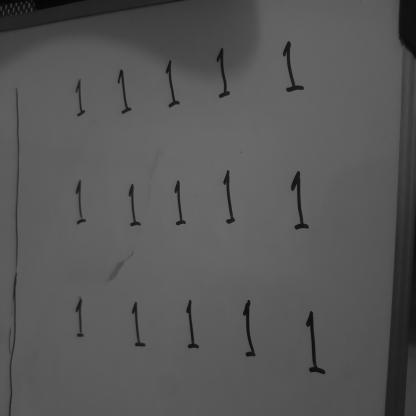 1 1 1 1 1
1 1 1 1 1
1 1 1 1 1